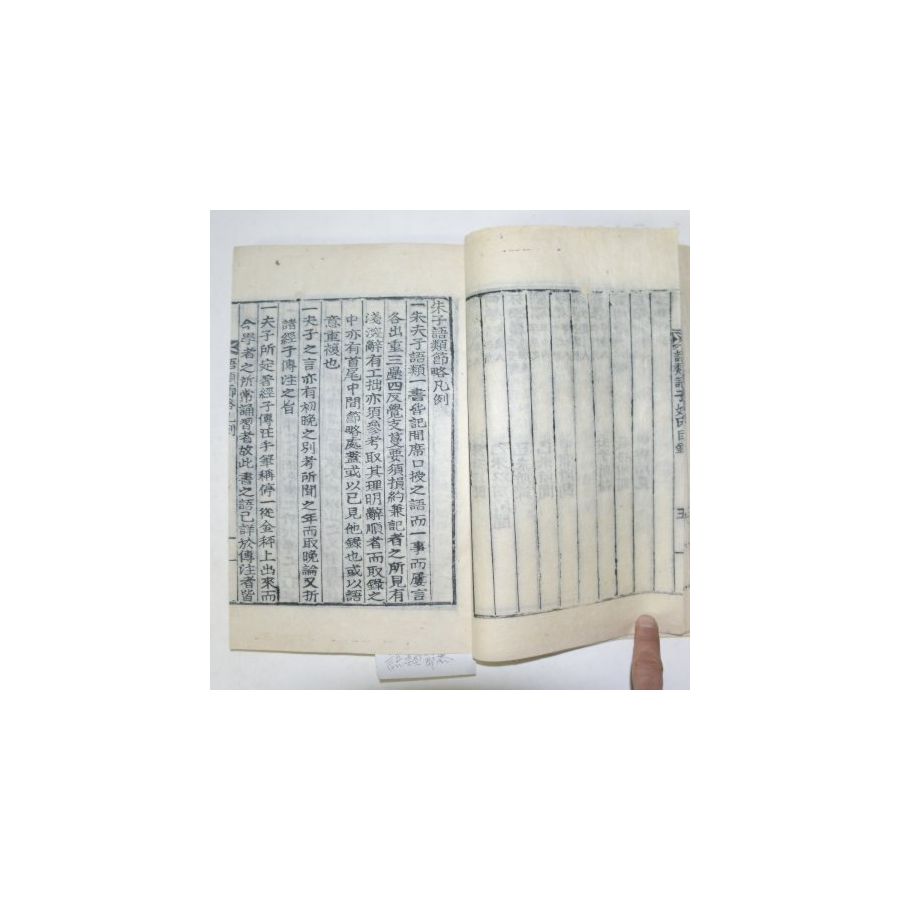 語類諸子姓氏目錄
五
朱子語類節略凡例
一朱夫子語類一書皆記間席口授之語而一事而屢言
各出重三疊四反覺支蔓要須損約兼記者之所見有
淺深辭有工拙亦須參考取其理明辭順者而取錄之
中亦有首尾中間節略處蓋或以已見他錄也或以語
意重複也
一夫子之言亦有初晚之別考所聞之年而取晚論又折
諸經子傳注之旨
一夫子所定著經子傳注手筆稱停一從金秤上出來而
今學者之所常誦習者故此書之語已詳於傳注者皆
語類節略凡例
一
語類節略